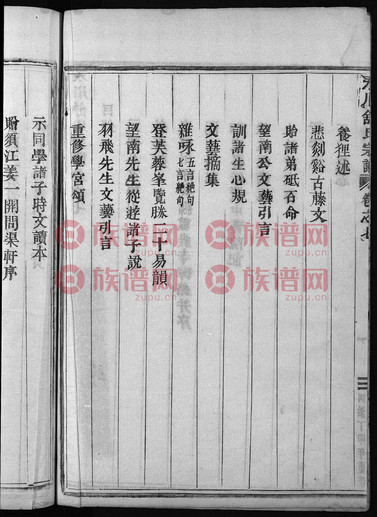 氏宗譜 卷之七
養狸述
悲剡谿古藤文
貽諸弟砥石命
望南公文藝引言
訓諸生心規
文藝摘集
雜咏 五言絕句 七言絕句
登芙蓉峯覽勝二十易韻
望南先生從遊諸子說
羽飛先生文藝引言
重修學宮頌
示同學諸子時文讀本
贈須江姜一開問渠軒序
族谱网
zupu.cn